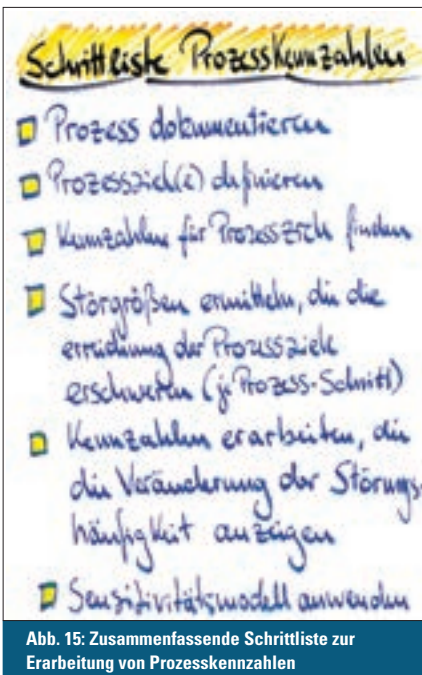 Schrittliste Prozesskennzahlen
Prozess dokumentieren
Prozessziel(e) definieren
Kennzahlen für Prozessziele finden
Störgrößen ermitteln, die die
erreichung der Prozessziele
erschweren (je Prozess-Schritt)
Kennzahlen erarbeiten, die
die Veränderung der Störungs-
häufigkeit anzeigen
Sensitivitätsmodell anwenden
Abb. 15: Zusammenfassende Schrittliste zur
Erarbeitung von Prozesskennzahlen